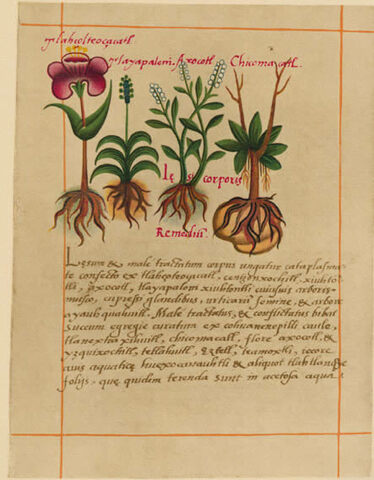 Tlahçolteoçacatl.
Tlayapaloni. Axocotl. Chicomacatl.
Læsi corporis
Remedium.
Læsum & male tractatum corpus ungatur cataplasma-
te confecto ex tlahçolteoçacatl, centzonxochitl, xiuhto-
tli, axocotl, tlayapaloni xiuhtontli cuiusvis arboris
musco, cupressi glandibus, urticarum semine, & arbore
ayauhquahuitl. Male tractatus, & conflictatus bibat
succum egregie curatum ex cohuanenepilli caule,
tlanextia xihuitl, chicomacatl, flore axocotl, &
yzquixochitl, tetlahuitl, eztetl, teamoxtli,
avis aquaticæ huexocanauhtli & aliquot tlahtlanquaye
folijs. quæ quidem terenda sunt in acetosa aqua.